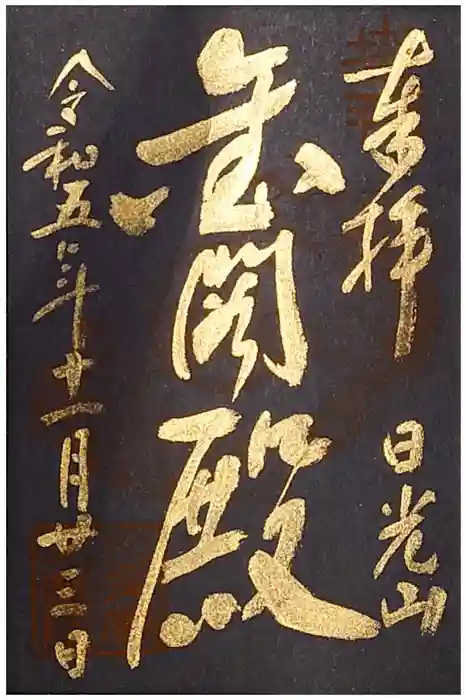 奉拝　日光山
金閣殿
令和五年十一月廿三日